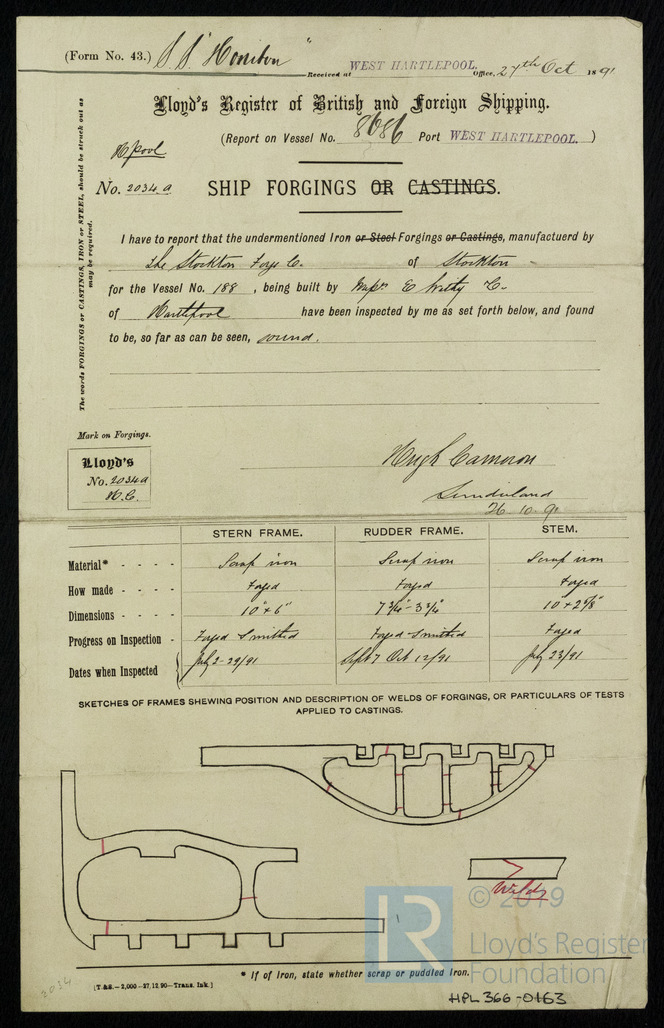 (Form No. 43.) S.S. "Honiton"
Received at WEST HARTLEPOOL. Office, 27th Oct 1891
Lloyd's Register of British and Foreign Shipping.
(Report on Vessel No. 8686 Port WEST HARTLEPOOL. )
H'pool
No. 2034.a SHIP FORGINGS OR CASTINGS.
The words FORGINGS or CASTINGS, IRON or STEEL, should be struck out as may be required.
I have to report that the undermentioned Iron or Steel Forgings or Castings, manufactuerd by
The Stockton Forge Co. of Stockton
for the Vessel No. 188 , being built by Mess'rs E Withy & Co.
of Hartlepool have been inspected by me as set forth below, and found
to be, so far as can be seen, sound.
Mark on Forgings.
Lloyd's
No. 2034a
H.C.
Hugh Cameron
Sunderland
26.10.91
STERN FRAME. RUDDER FRAME. STEM.
Material* - - - - Scrap iron Scrap iron Scrap iron
How made - - - - Forged Forged Forged
Dimensions - - - - 10" x 6"
Progress on Inspection - Forged Smithed Forged Smithed Forged
Dates when Inspected July 2-29/91 Sept 7 Oct 12/91 July 23/91
SKETCHES OF FRAMES SHEWING POSITION AND DESCRIPTION OF WELDS OF FORGINGS, OR PARTICULARS OF TESTS
APPLIED TO CASTINGS.
Welds
© 2019
LR
Lloyd's Register
Foundation
* If of Iron, state whether scrap or puddled Iron.
[T.&S.-2,000-27.12.90-Trans. Ink.]
2034
HPL366-0163